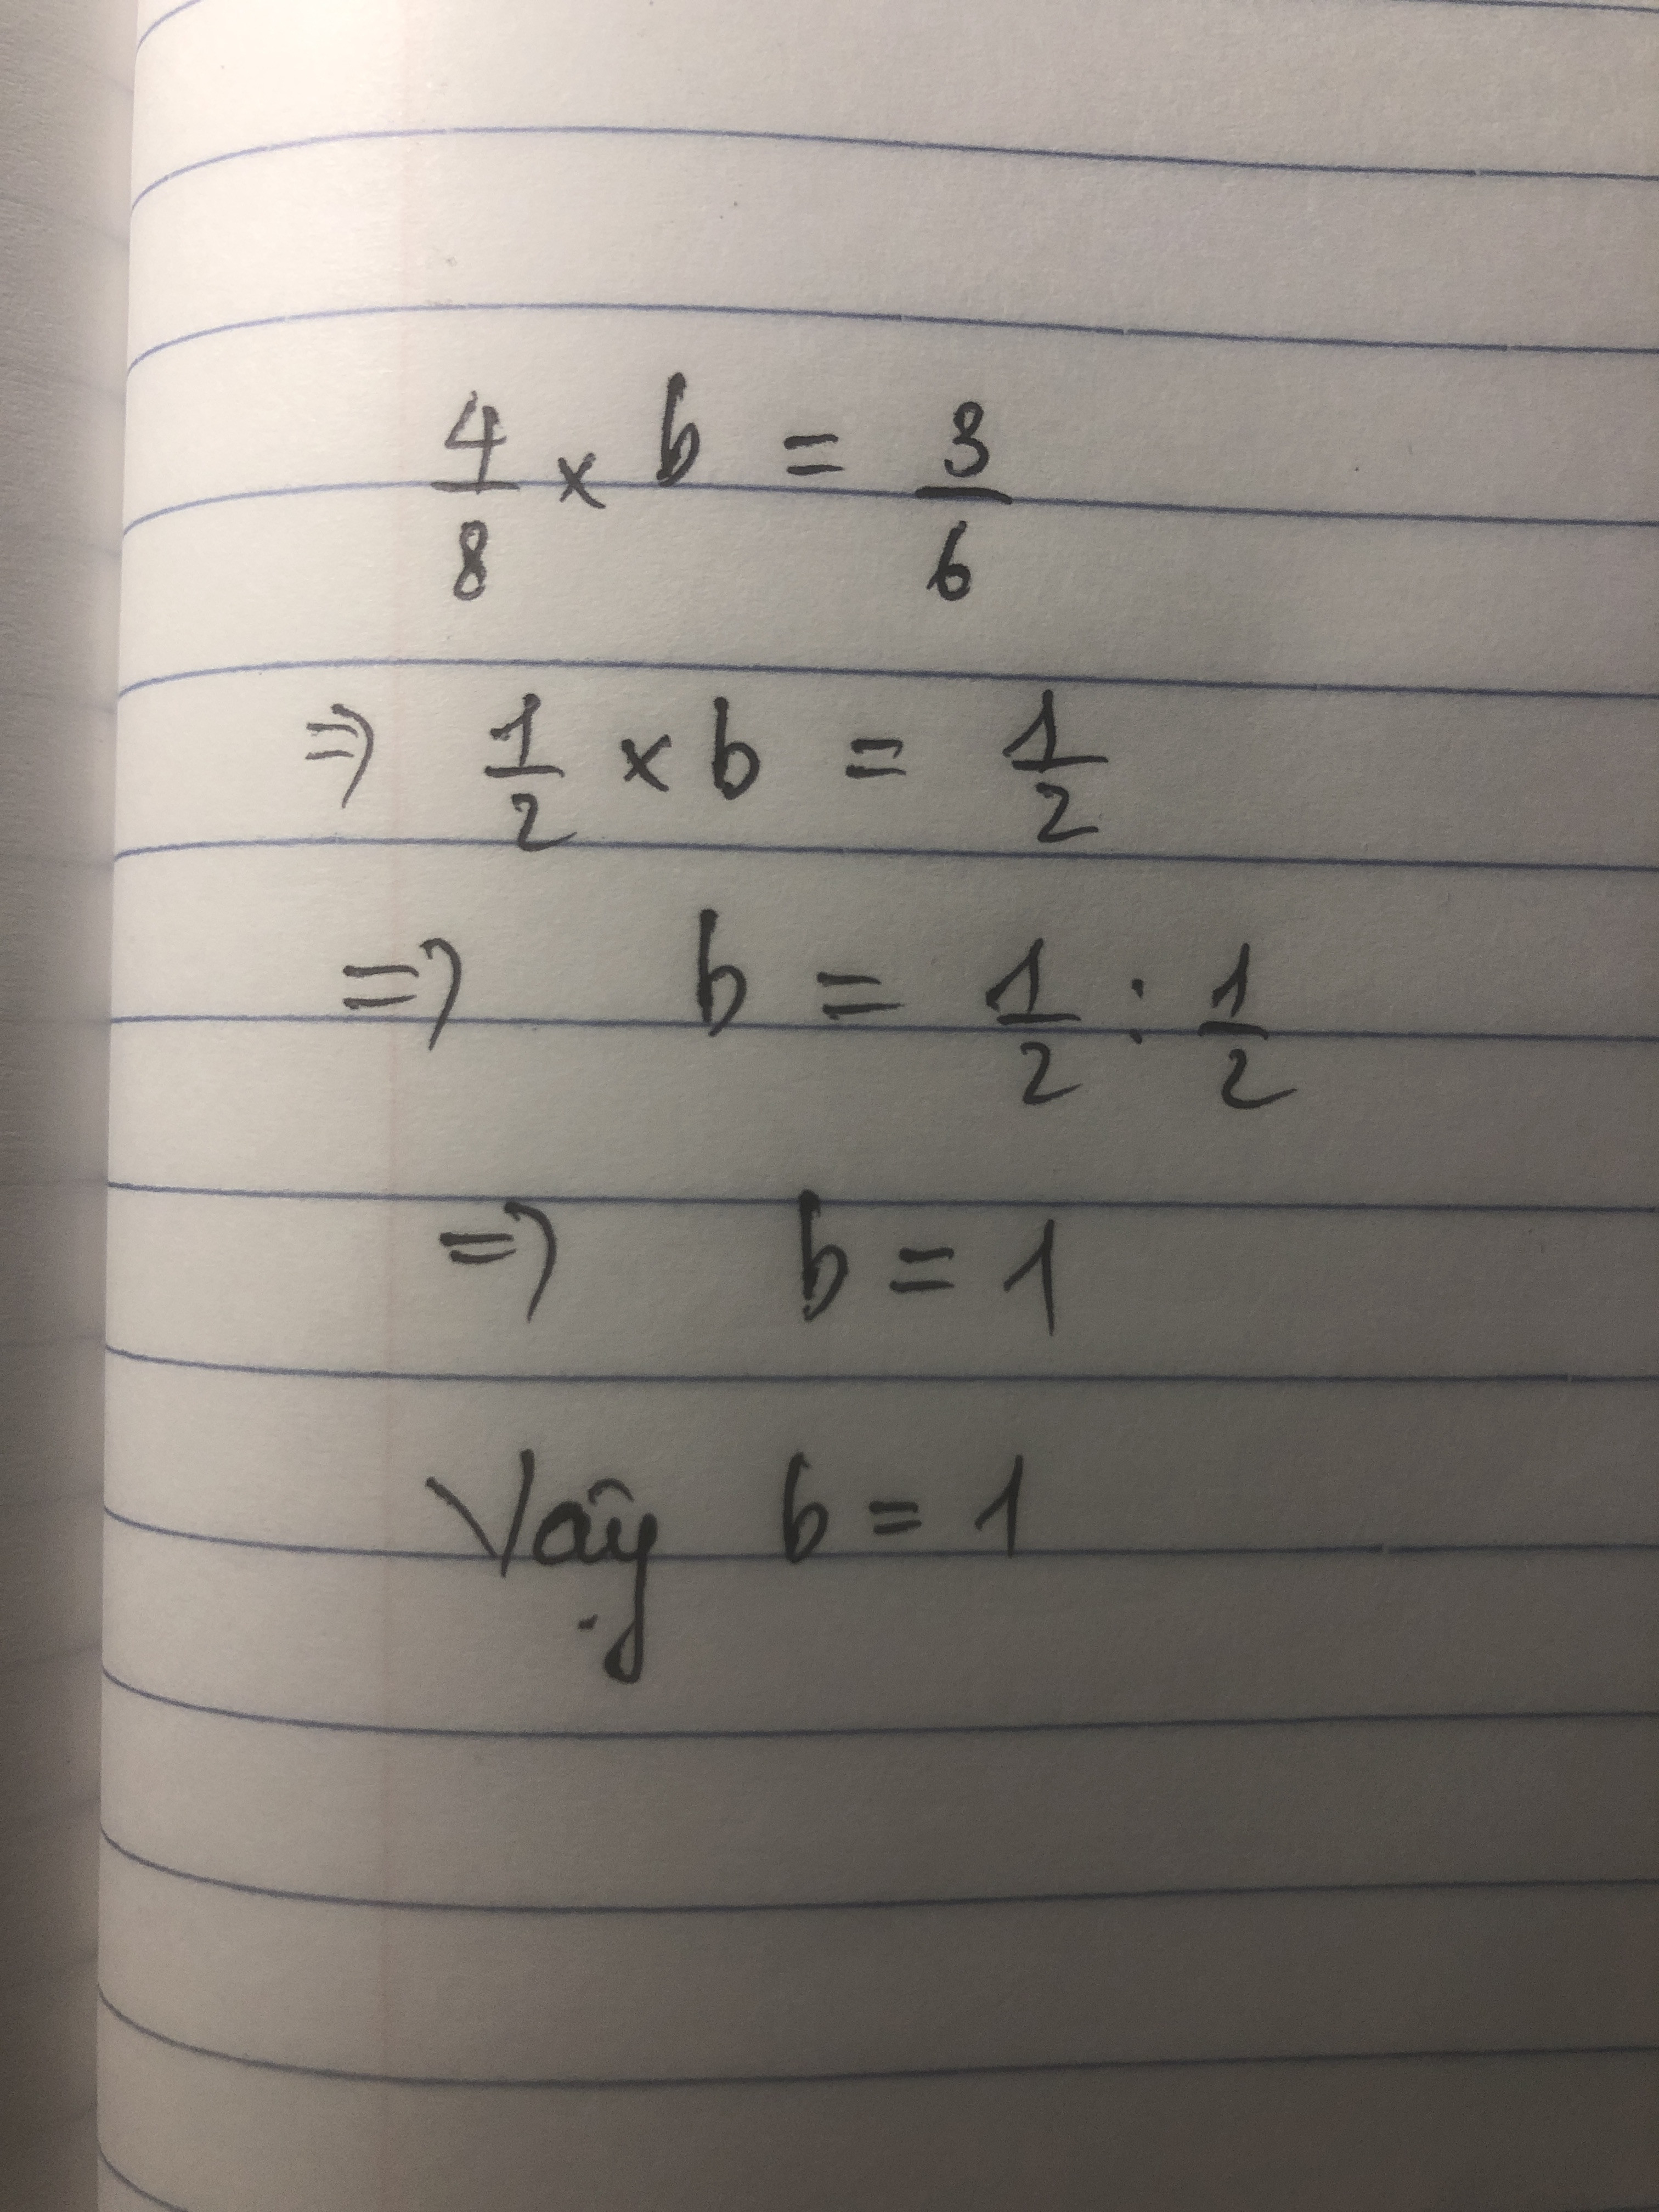 4/8 x b = 3/6
=> 1/2 x b = 1/2
=> b = 1/2 : 1/2
=> b = 1
Vậy b = 1